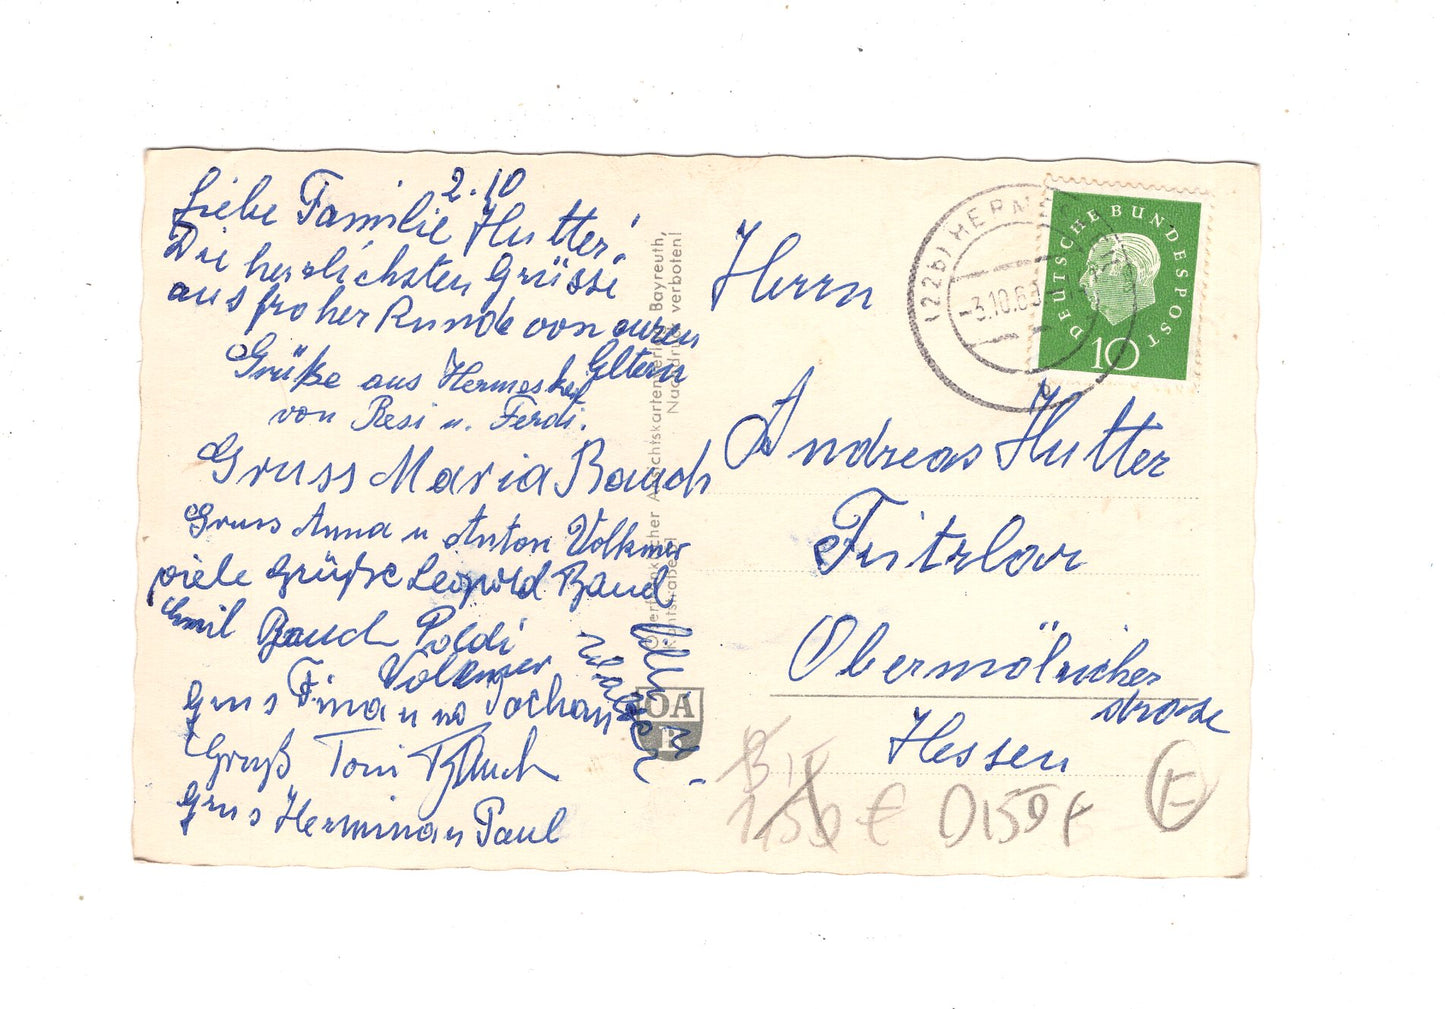 2.10
Liebe Familie Hutter!
Die herzlichsten Grüsse
aus froher Runde von euren
Eltern
Grüße aus Hermeskeil
von Resi u. Ferdi.
Gruss Maria Bauch
Gruss Anna u Anton Volkmer
viele Grüße Leopold Bauch
Emil Bauch Poldi
Volkmer
Grus Fina u
Gruß Toni Bauch
Grus Hermina u Paul
Oberfränkischer Ansichtskartenverlag Bayreuth,
Nachdruck verboten!
OA
(22b) HERMESKEIL
-3.10.60
b
DEUTSCHE BUNDESPOST
10
Herrn
Andreas Hutter
Fritzlar
Obermölricher
strasse
Hessen
1,50 €
E